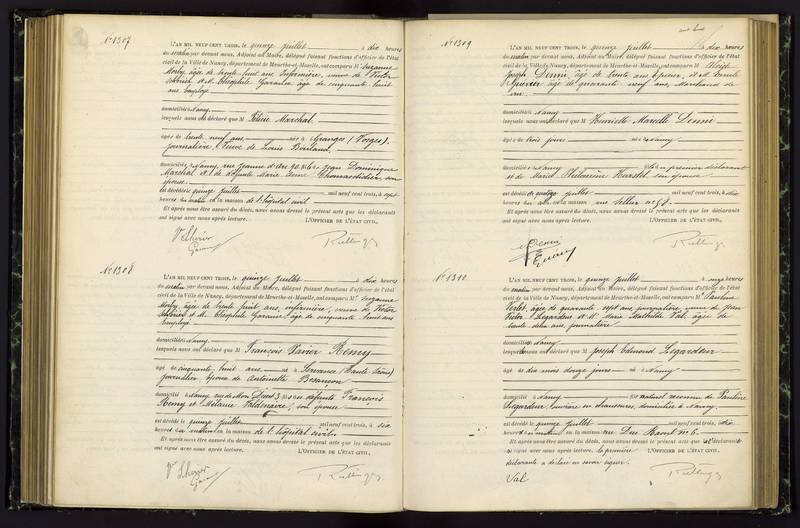 No 1307
L'AN MIL NEUF CENT TROIS, le quinze juillet à dix heures
du matin par devant nous, Adjoint au Maire, délégué faisant fonctions d'officier de l'état
civil de la Ville de Nancy, département de Meurthe-et-Moselle, ont comparu M Suzanne
âgée de trente huit ans, infirmière, veuve de Victor
et M. Théophile Garaune âgé de cinquante huit
ans employé
domiciliés à Nancy
lesquels nous ont déclaré que M Félicie Marchal
âgée de trente neuf ans née à Granges (Vosges)
journalière, veuve de Louis
domiciliée à Nancy, rue Jeanne d'Arc 90, fille de Jean Dominique
Marchal et de défunte Marie Anne son
épouse
est décédée le quinze juillet mil neuf cent trois, à sept
heures du matin en la maison de l'hôpital civil
Et après nous être assuré du décès, nous avons dressé le présent acte que les déclarants
ont signé avec nous après lecture. L'OFFICIER DE L'ÉTAT CIVIL,
No 1308
L'AN MIL NEUF CENT TROIS, le quinze juillet à dix heures
du matin par devant nous, Adjoint au Maire, délégué faisant fonctions d'officier de l'état
civil de la Ville de Nancy, département de Meurthe-et-Moselle, ont comparu M Suzanne
âgée de trente huit ans, infirmière, veuve de Victor
et M. Théophile Garaune, âgé de cinquante huit ans
employé
domiciliés à Nancy
lesquels nous ont déclaré que M François Xavier Remy
âgé de cinquante huit ans né à Servance (Haute Saône)
journalier, époux de Antoinette Besançon
domicilié à Nancy, rue de Mon Désert 3, fils de défunts François
Remy et Mélanie Valdenaire, son épouse
est décédé le quinze juillet mil neuf cent trois, à six
heures du matin en la maison de l'hôpital civil
Et après nous être assuré du décès, nous avons dressé le présent acte que les déclarants
ont signé avec nous après lecture. L'OFFICIER DE L'ÉTAT CIVIL,
No 1309
L'AN MIL NEUF CENT TROIS, le quinze juillet à dix heures
du matin par devant nous, Adjoint au Maire, délégué faisant fonctions d'officier de l'état
civil de la Ville de Nancy, département de Meurthe-et-Moselle, ont comparu M
Joseph Denni, âgé de trente ans, père, et M. Emile
âgé de quarante neuf ans, Marchand de
vin
domiciliés à Nancy
lesquels nous ont déclaré que M Henriette Marcelle Denni
âgée de trois jours née à Nancy
domiciliée à Nancy fille du premier déclarant
et de Marie son épouse
est décédée le juillet mil neuf cent trois, à dix
heures du en la maison rue Sellier no 58
Et après nous être assuré du décès, nous avons dressé le présent acte que les déclarants
ont signé avec nous après lecture. L'OFFICIER DE L'ÉTAT CIVIL,
No 1310
L'AN MIL NEUF CENT TROIS, le quinze juillet à onze heures
du matin par devant nous, Adjoint au Maire, délégué faisant fonctions d'officier de l'état
civil de la Ville de Nancy, département de Meurthe-et-Moselle, ont comparu M Pauline
âgée de quarante sept ans, journalière, veuve de Jean
Victor Legardeur et M Marie Mathilde Val, âgée de
trente ans, journalière
domiciliées à Nancy
lesquelles nous ont déclaré que M Joseph Edmond Legardeur
âgé de dix mois douze jours né à Nancy
domicilié à Nancy fils naturel reconnu de Pauline
Legardeur, ouvrière en chaussures, domiciliée à Nancy
est décédé le quinze juillet mil neuf cent trois, à dix
heures du matin en la maison rue Duc Raoul no 6
Et après nous être assuré du décès, nous avons dressé le présent acte que la déclarante
a signé avec nous après lecture, la première L'OFFICIER DE L'ÉTAT CIVIL,
déclarante a déclaré ne savoir signer
Val